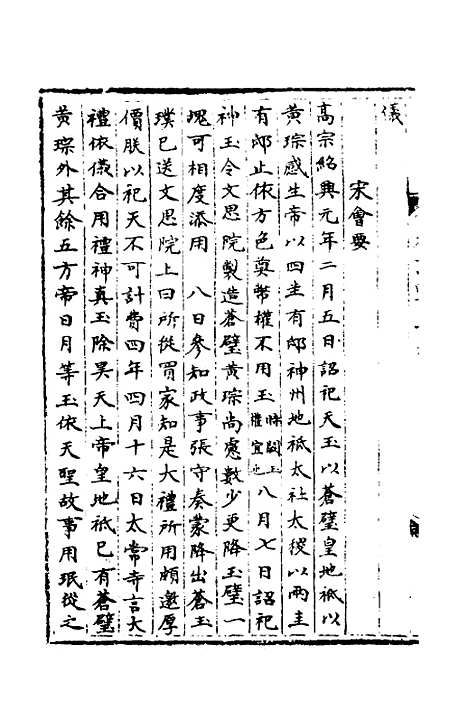 儀
宋會要
高宗紹興元年二月五日詔祀天玉以蒼璧皇地祇以
黃琮感生帝以四圭有邸神州地祇太社太稷以兩圭
有邸止依方色奠幣權不用玉 權宜也 八月七日詔祀
神玉令文思院製造蒼璧黃琮尚慮數少更降玉璧一
塊可相度添用 八日參知政事張守奏蒙降出蒼玉
璞已送文思院上曰所從買家知是大禮所用頗邀厚
價朕以祀天不可計費四年四月十六日太常寺言大
禮依儀合用禮神真玉除昊天上帝皇地祇已有蒼璧
黃琮外其餘五方帝日月等玉依天聖故事用珉從之